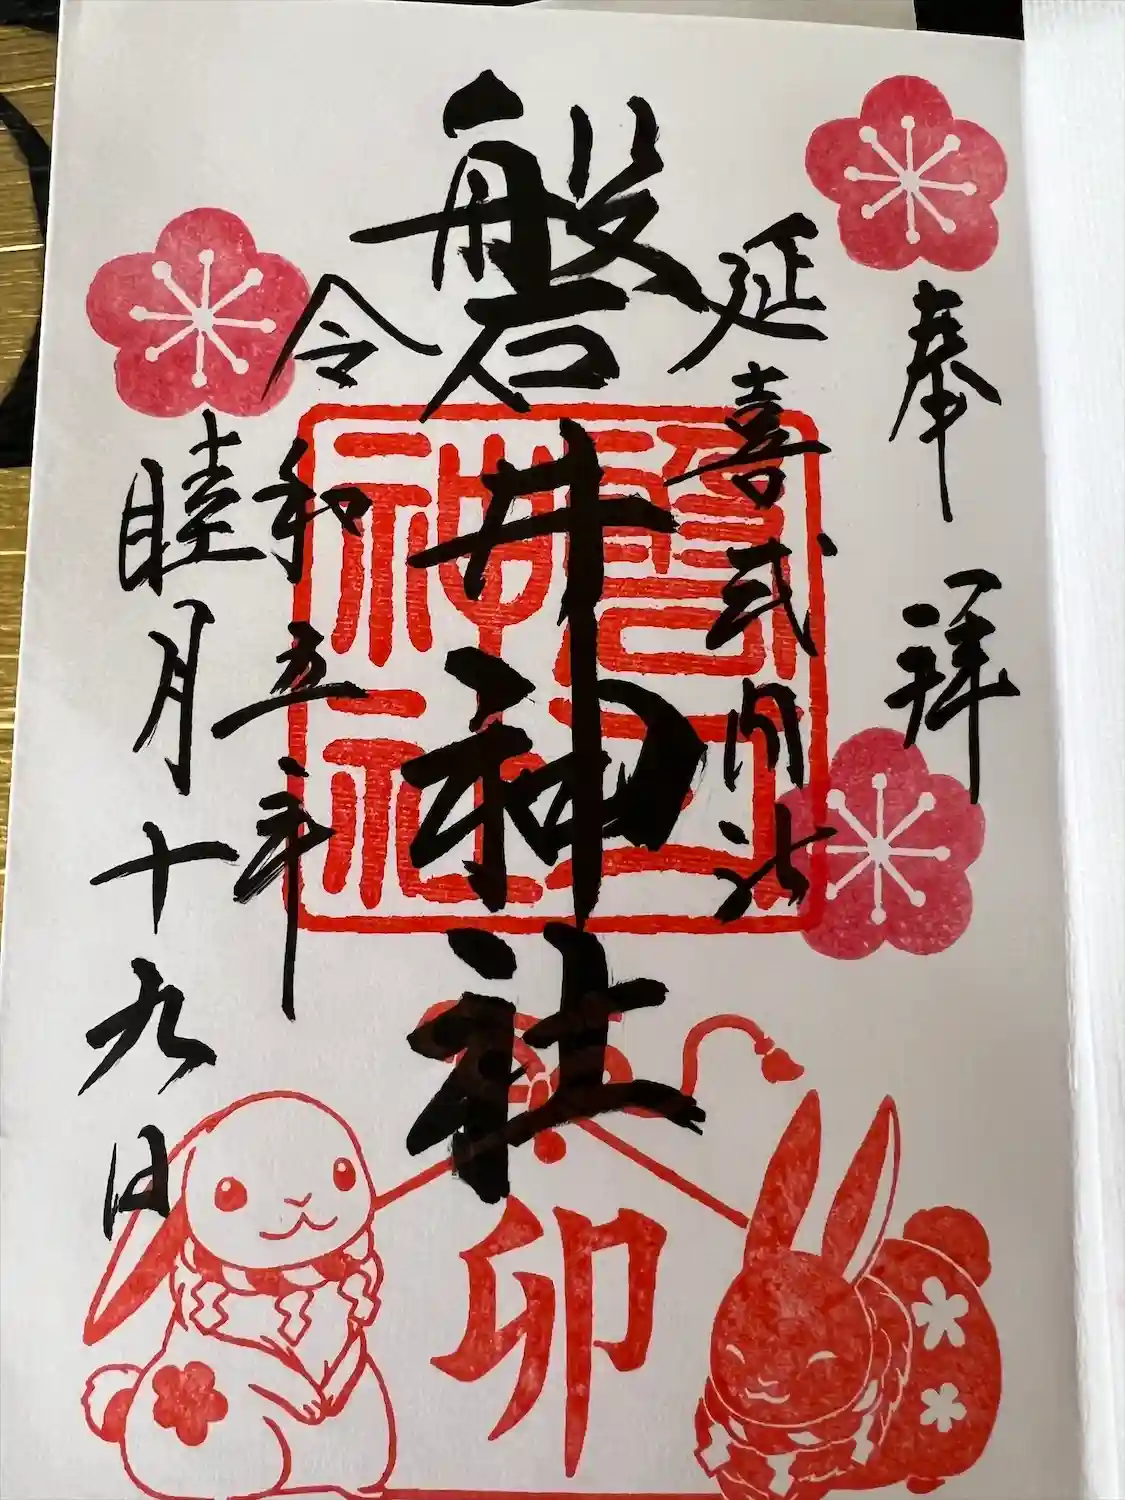 奉拝
延喜式内社
磐井神社
磐井神社
令和五年
睦月十九日
卯